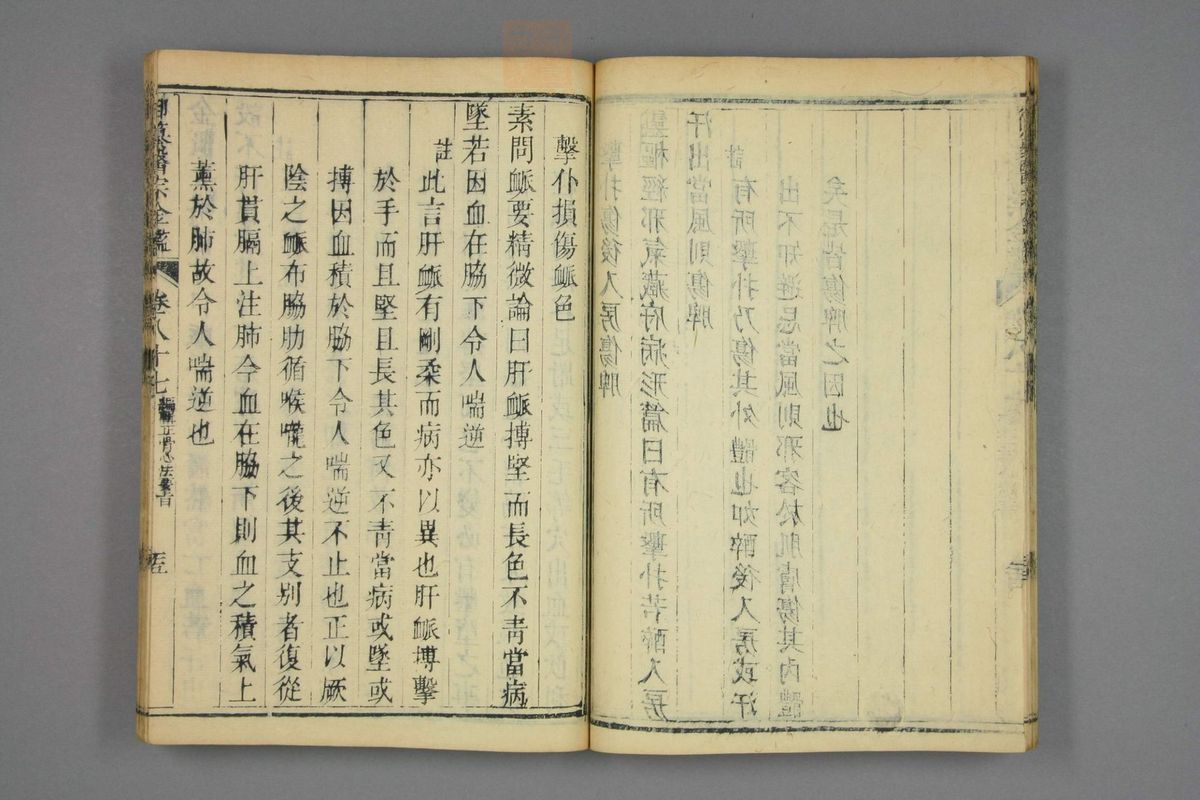 擊扑傷後入房傷脾
靈樞經邪氣藏府病形篇曰有所擊扑若醉入房
汗出當風則傷脾
註有所擊扑乃傷其外體也如醉後入房或汗
出不知避忌當風則邪客於肌膚傷其內體
矣是皆傷脾之因也
擊仆損傷脈色
素問脈要精微論曰肝脈搏堅而長色不青當病
墜若因血在脇下令人喘逆
註此言肝脈有剛柔而病亦以異也肝脈搏擊
於手而且堅且長其色又不青當病或墜或
搏因血積於脇下令人喘逆不止也正以厥
陰之脈布脇肋循喉嚨之後其支别者復從
肝貫膈上注肺今血在脇下則血之積氣上
薰於肺故令人喘逆也
御纂醫宗金鑑 卷八十七 編輯正骨心法要旨